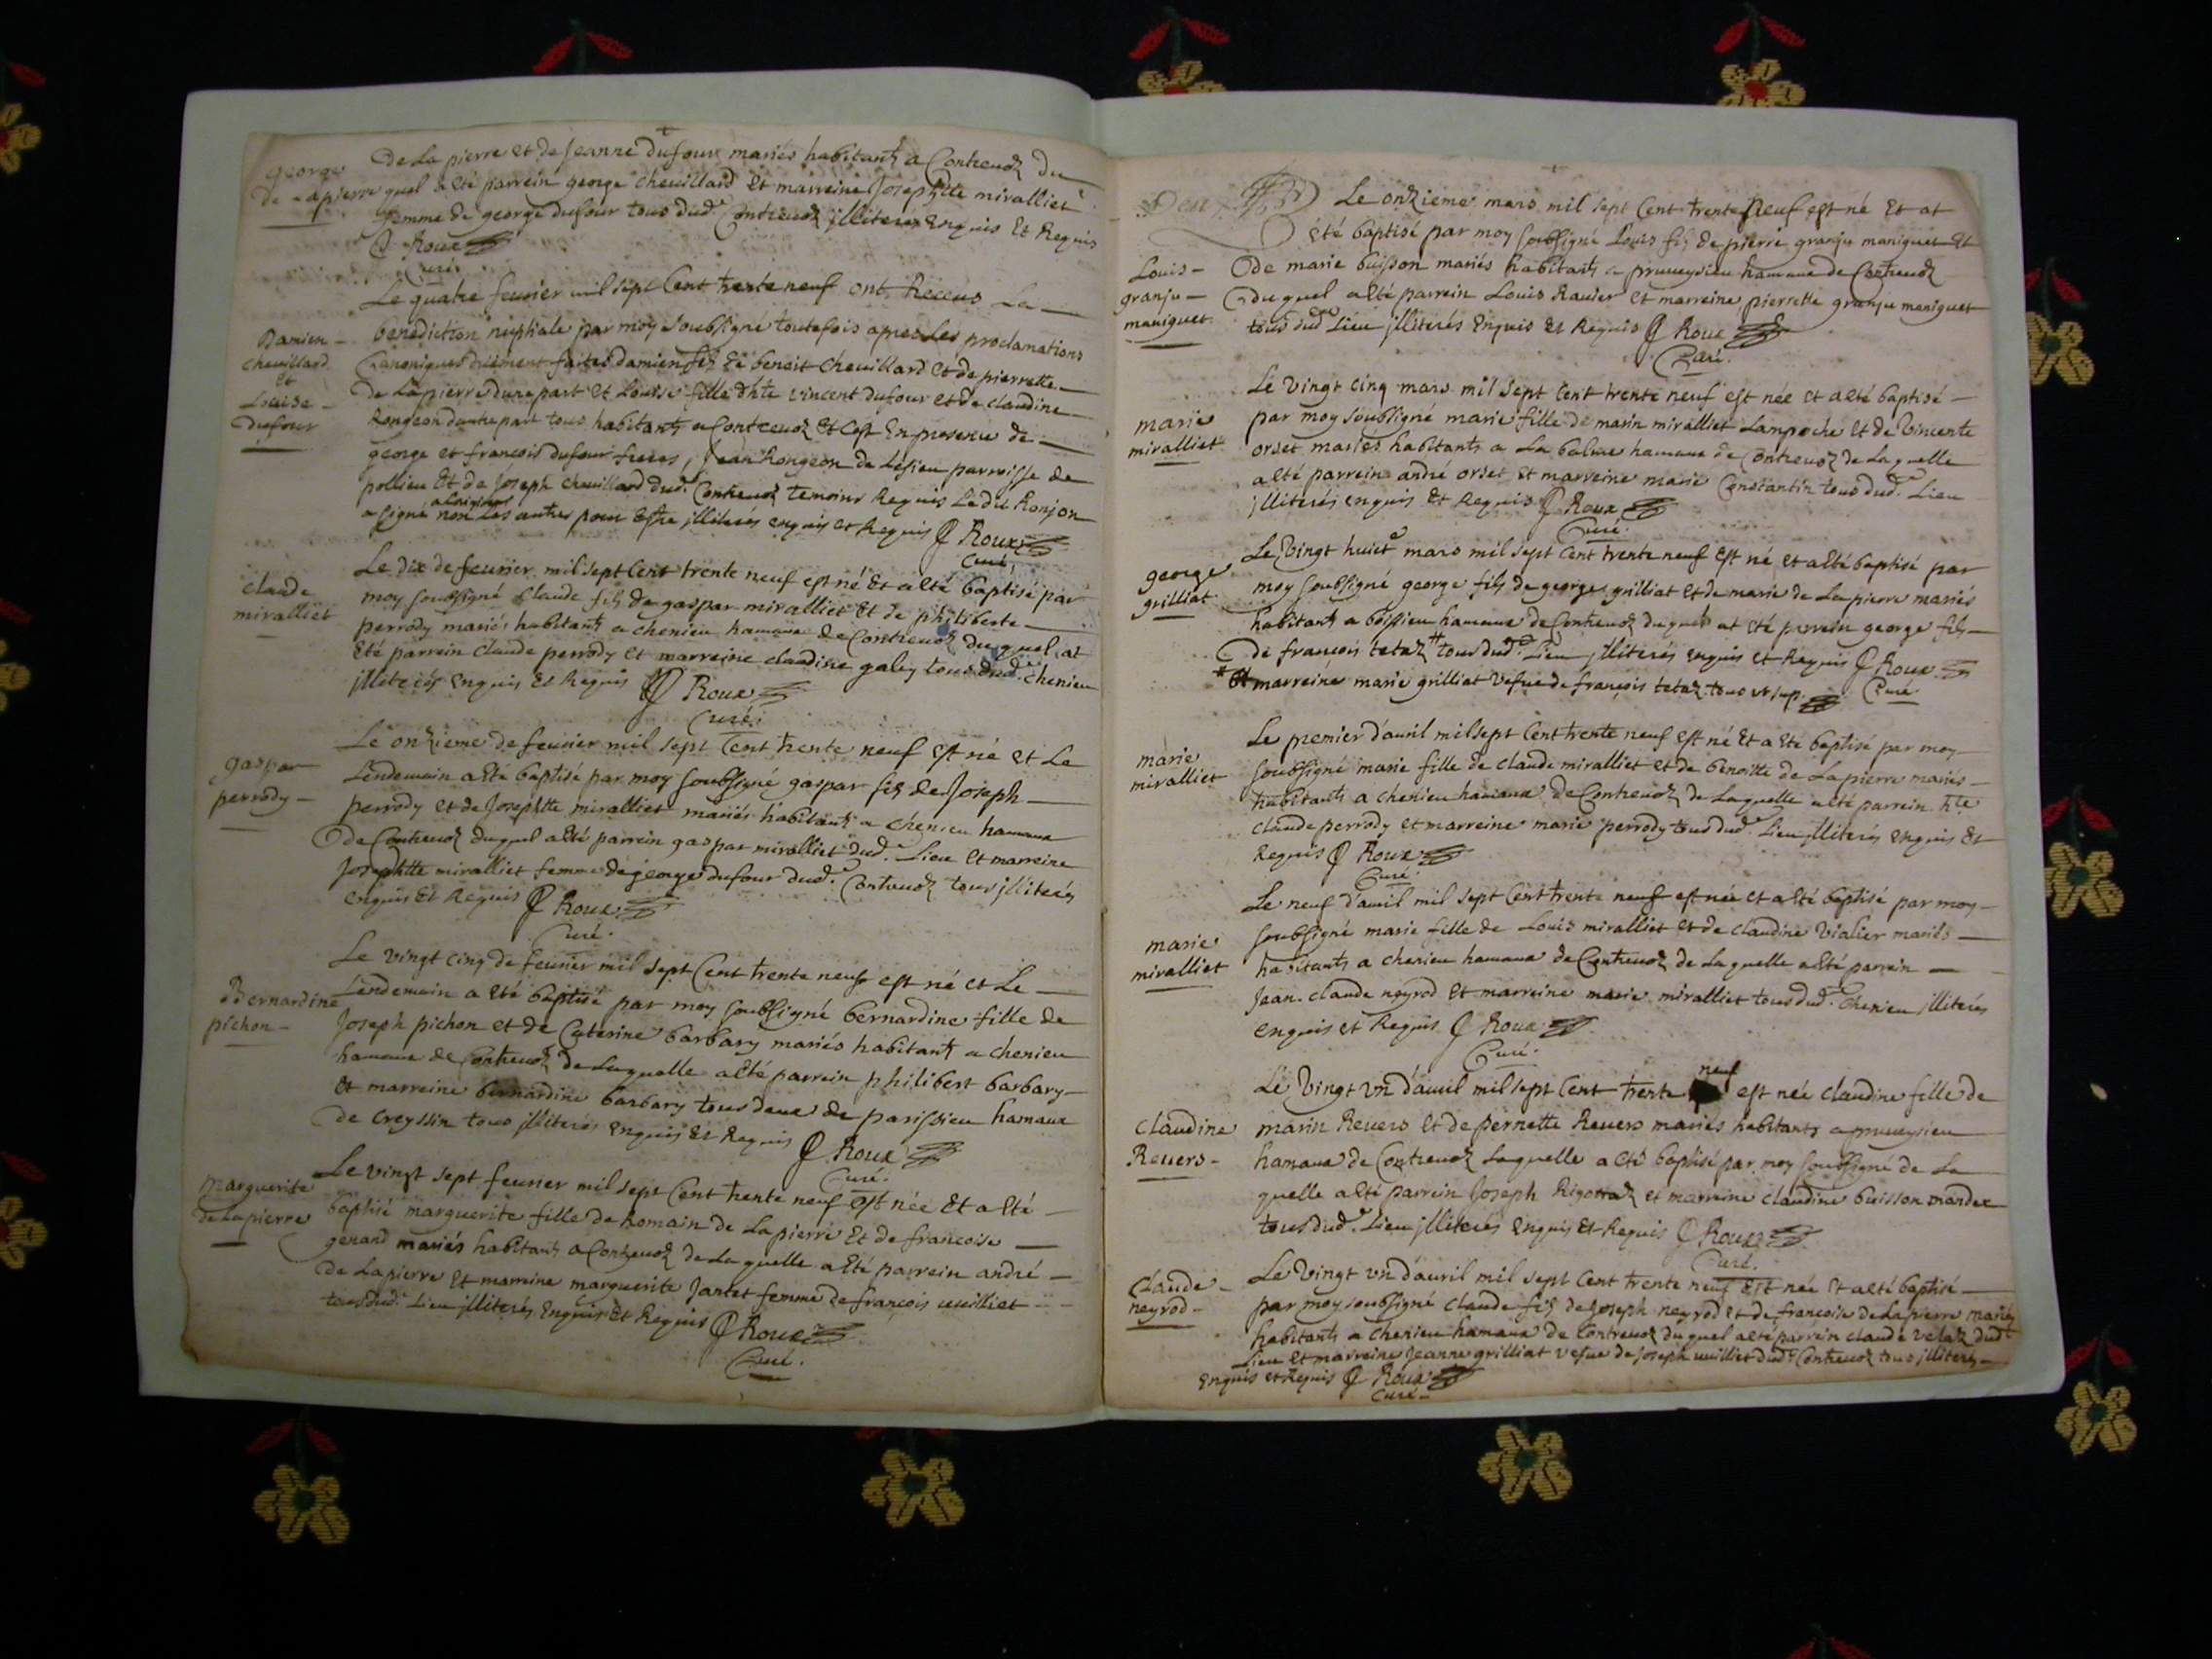 george
de Lapierre
De La pierre et de Jeanne dufour mariés habitants a Contrevoz du
quel a eté parrein george Chevillard et marreine Josephtte miralliet
femme de george dufour tous dud. Contrevoz jlliterés enquis et Requis
Roux
Curé
Damien
chevillard
et
Louise
Dufour
Le quatre fevrier mil sept Cent trente neuf ont Receus La
benediction nuptiale par moy soubsigné toutefois apres Les proclamations
Canoniques duement faites damien fils de benoit chevillard et de pierrette
de Lapierre dune part et Louise fille d'hte vincent dufour et de claudine
Rongeon dautre part tous habitants a Contrevoz et C'est En presence de
george et francois dufour freres, Jean Rongeon de Lisieu parroisse de
pollieu et de Joseph chevillard dud. Contrevoz temoins Requis Ledit Ronjon
a signé non Les autres pour Estre jlliterés enquis et Requis Roux
Curé
claude
miralliet
Le dix de fevrier mil sept Cent trente neuf est né et a eté baptisé par
moy soubsigné claude fils de gaspar miralliet et de philiberte
perrody mariés habitants a chenieu hamaux de Contrevoz duquel at
eté parrein claude perrody et marreine claudine galey tous dud. chenieu
jlliterés enquis et Requis Roux
Curé
gaspar
perrody
Le onzieme de fevrier mil sept Cent trente neuf est né et Le
Lendemain a eté baptisé par moy soubsigné gaspar fils de Joseph
perrody et de Josephtte miralliet mariés habitants a chenieu hamaux
de Contrevoz duquel a eté parrein gaspar miralliet dud. Lieu et marreine
Josephtte miralliet femme de george dufour dud. Contrevoz tous jlliterés
enquis et Requis Roux
Curé.
Bernardine
pichon
Le vingt cinq de fevrier mil sept Cent trente neuf est né et Le
Lendemain a eté baptisé par moy soubsigné bernardine fille de
Joseph pichon et de Caterine barbary mariés habitants a chenieu
hamaux de Contrevoz de Laquelle a eté parrein philibert barbary
et marreine bernardine barbary tous deux de parissieu hamaux
de Creyssin tous jlliterés enquis et Requis Roux
Curé.
Marguerite
de Lapierre
Le vingt sept fevrier mil sept Cent trente neuf est née et a eté
baptisé marguerite fille de Romain de Lapierre et de francoise
genand mariés habitants a Contrevoz de Laquelle a eté parrein andré
de Lapierre et marreine marguerite Jantet femme de françois vuilliet
tous dud. Lieu jlliterés Enquis et Requis Roux
Curé.
Louis
granju
maniquet
Le onzieme mars mil sept Cent trente neuf est né et at
été baptisé par moy soubsigné Louis fils de pierre granju maniquet et
de marie buisson mariés habitants a pruveysieu hamaux de Contrevoz
duquel a eté parrein Louis Ravier et marreine pierrette granju maniquet
tous dud. Lieu jlliterés enquis et Requis Roux
Curé.
marie
miralliet
Le vingt cinq mars mil sept Cent trente neuf est née et a eté baptisé
par moy soubsigné marie fille de marin miralliet Lampoche et de vincente
orset mariés habitants a La balme hamaux de Contrevoz de Laquelle
a eté parrein andré orset et marreine marie Constantin tous dud. Lieu
jlliterés enquis et Requis Roux
Curé.
george
grilliat
Le Vingt huict mars mil sept Cent trente neuf est né et a eté baptisé par
moy soubsigné george fils de george grilliat et de marie de Lapierre mariés
habitants a boissieu hamaux de Contrevoz duquel at eté parrein george fils
de françois tetaz # tous dud. Lieu jlliterés enquis et Requis Roux
# et marreine marie grilliat vefve de françois tetaz tous ut sup. Curé.
marie
miralliet
Le premier d'avril mil sept Cent trente neuf est né et a eté baptisé par moy
soubsigné marie fille de claude miralliet et de benoitte de Lapierre mariés
habitants a chenieu hamaux de Contrevoz de Laquelle a eté parrein hte
claude perrody et marreine marie perrody tous dud. Lieu jlliterés enquis et
Requis Roux
Curé.
marie
miralliet
Le neuf d'avril mil sept Cent trente neuf est née et a eté baptisé par moy
soubsigné marie fille de Louis miralliet et de claudine vialier mariés
habitants a chenieu hamaux de Contrevoz de Laquelle a eté parrein
Jean-claude neyrod et marreine marie miralliet tous dud. Chenieu jlliterés
enquis et Requis Roux
Curé.
claudine
Revers
Le Vingt vn d'avril mil sept Cent trente neuf est née claudine fille de
marin Revers et de pernette Revers mariés habitants a pruveysieu
hamaux de Contrevoz Laquelle a eté baptisé par moy soubsigné de La
quelle a eté parrein Joseph Rigottaz et marreine claudine buisson mandee
tous dud. Lieu jlliterés enquis et Requis Roux
Curé.
claude
neyrod
Le Vingt vn d'avril mil sept Cent trente neuf est née et a eté baptisé
par moy soubsigné claude fils de Joseph neyrod et de francoise de Lapierre mariés
habitants a chenieu hamaux de Contrevoz duquel a eté parrein claude velaz dud.
Lieu et marreine Jeanne grilliat vefve de Joseph vuilliet dud. Contrevoz tous jlliterés
enquis et Requis Roux
Curé